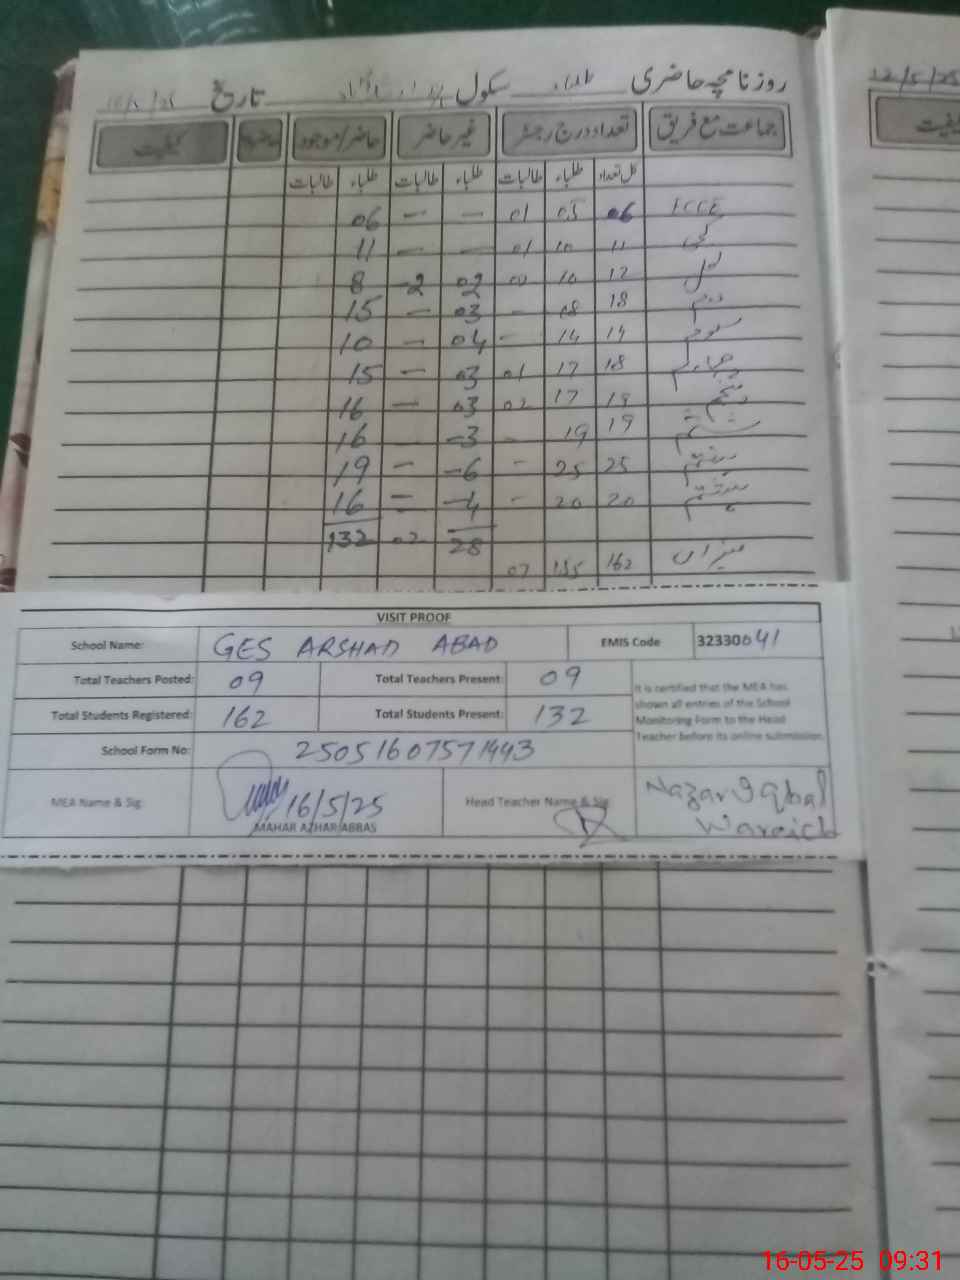 روزنامچہ حاضری طلباء سکول تاریخ
جماعت مع فریق تعداد درج رجسٹر غیر حاضر حاضر/موجود کیفیت
کل تعداد طلباء طالبات طلباء طالبات طلباء طالبات
ECCE 06 05 01 — — 06
کچی 11 10 01 — — 11
اول 12 10 02 02 2 8
دوم 18 18 - 03 — 15
سوئم 14 14 - 04 — 10
چہارم 18 17 01 03 — 15
پنجم 19 17 02 03 — 16
ششم 19 19 - 3 16
ہفتم 25 25 - 6 — 19
ہشتم 20 20 - 4 — 16
28 02 132
میزان 162 155 07
VISIT PROOF
School Name: GES ARSHAD ABAD EMIS Code 32330041
Total Teachers Posted: 09 Total Teachers Present: 09
Total Students Registered: 162 Total Students Present: 132
It is certified that the MEA has
shown all entries of the School
Monitoring Form to the Head
Teacher before its online submission.
School Form No: 25051607571443
MEA Name & Sig 16/5/25
MAHAR AZHAR ABBAS
Head Teacher Name & Sig
Nazar Iqbal
Waraich
12/5/25
کیفیت
16-05-25 09:31